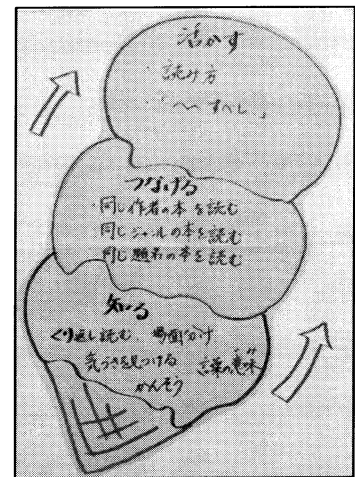 活かす
・読み方
つなげる
・同じ作者の本を読む
同じジャンルの本を読む
同じ題名の本を読む
知る
くり返し読む 場面分け
見つける 言葉の意味
かんそう